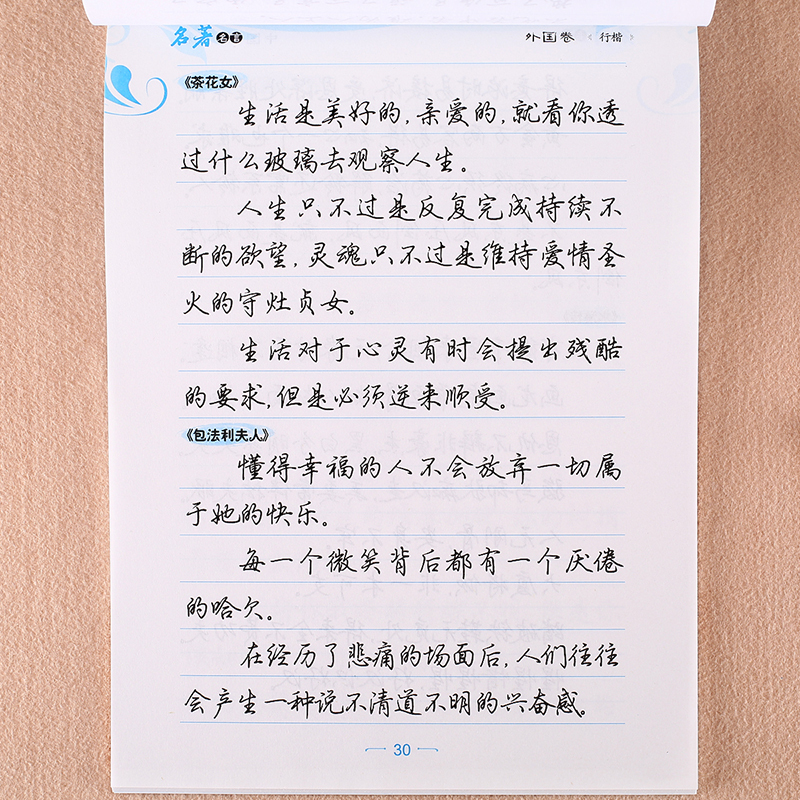 名著名言
外国卷 《行楷》
《茶花女》
生活是美好的,亲爱的,就看你透
过什么玻璃去观察人生。
人生只不过是反复完成持续不
断的欲望,灵魂只不过是维持爱情圣
火的守灶贞女。
生活对于心灵有时会提出残酷
的要求,但是必须逆来顺受。
《包法利夫人》
懂得幸福的人不会放弃一切属
于她的快乐。
每一个微笑背后都有一个厌倦
的哈欠。
在经历了悲痛的场面后,人们往往
会产生一种说不清道不明的兴奋感。
30